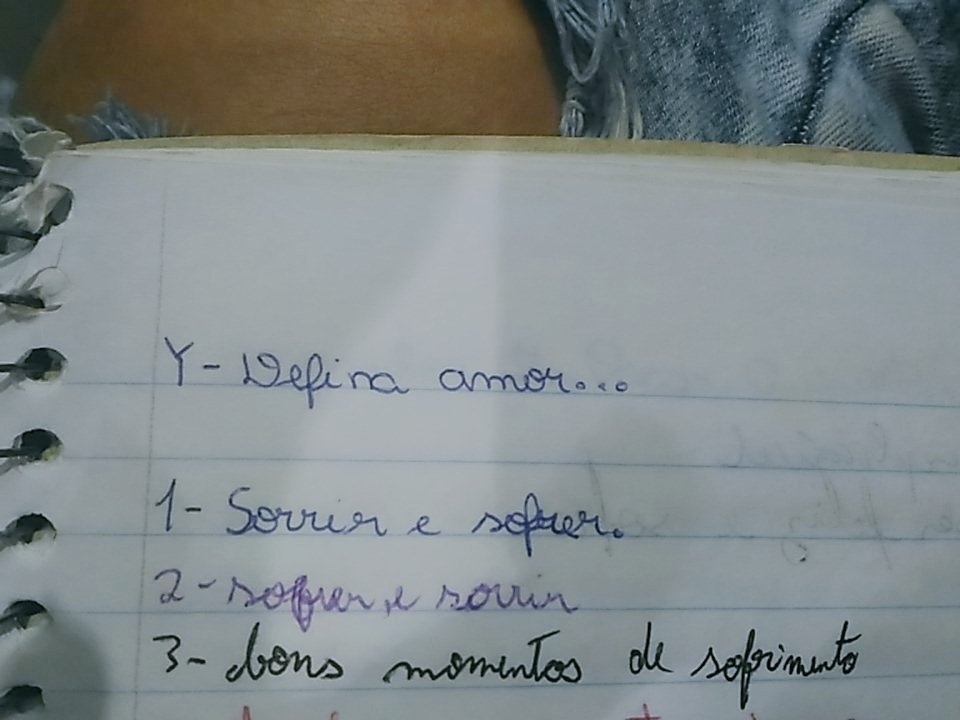 Y- Defina amor...
1- Sorrir e sofrer.
2- sofrer, e sorrir
3- bons momentos de sofrimento